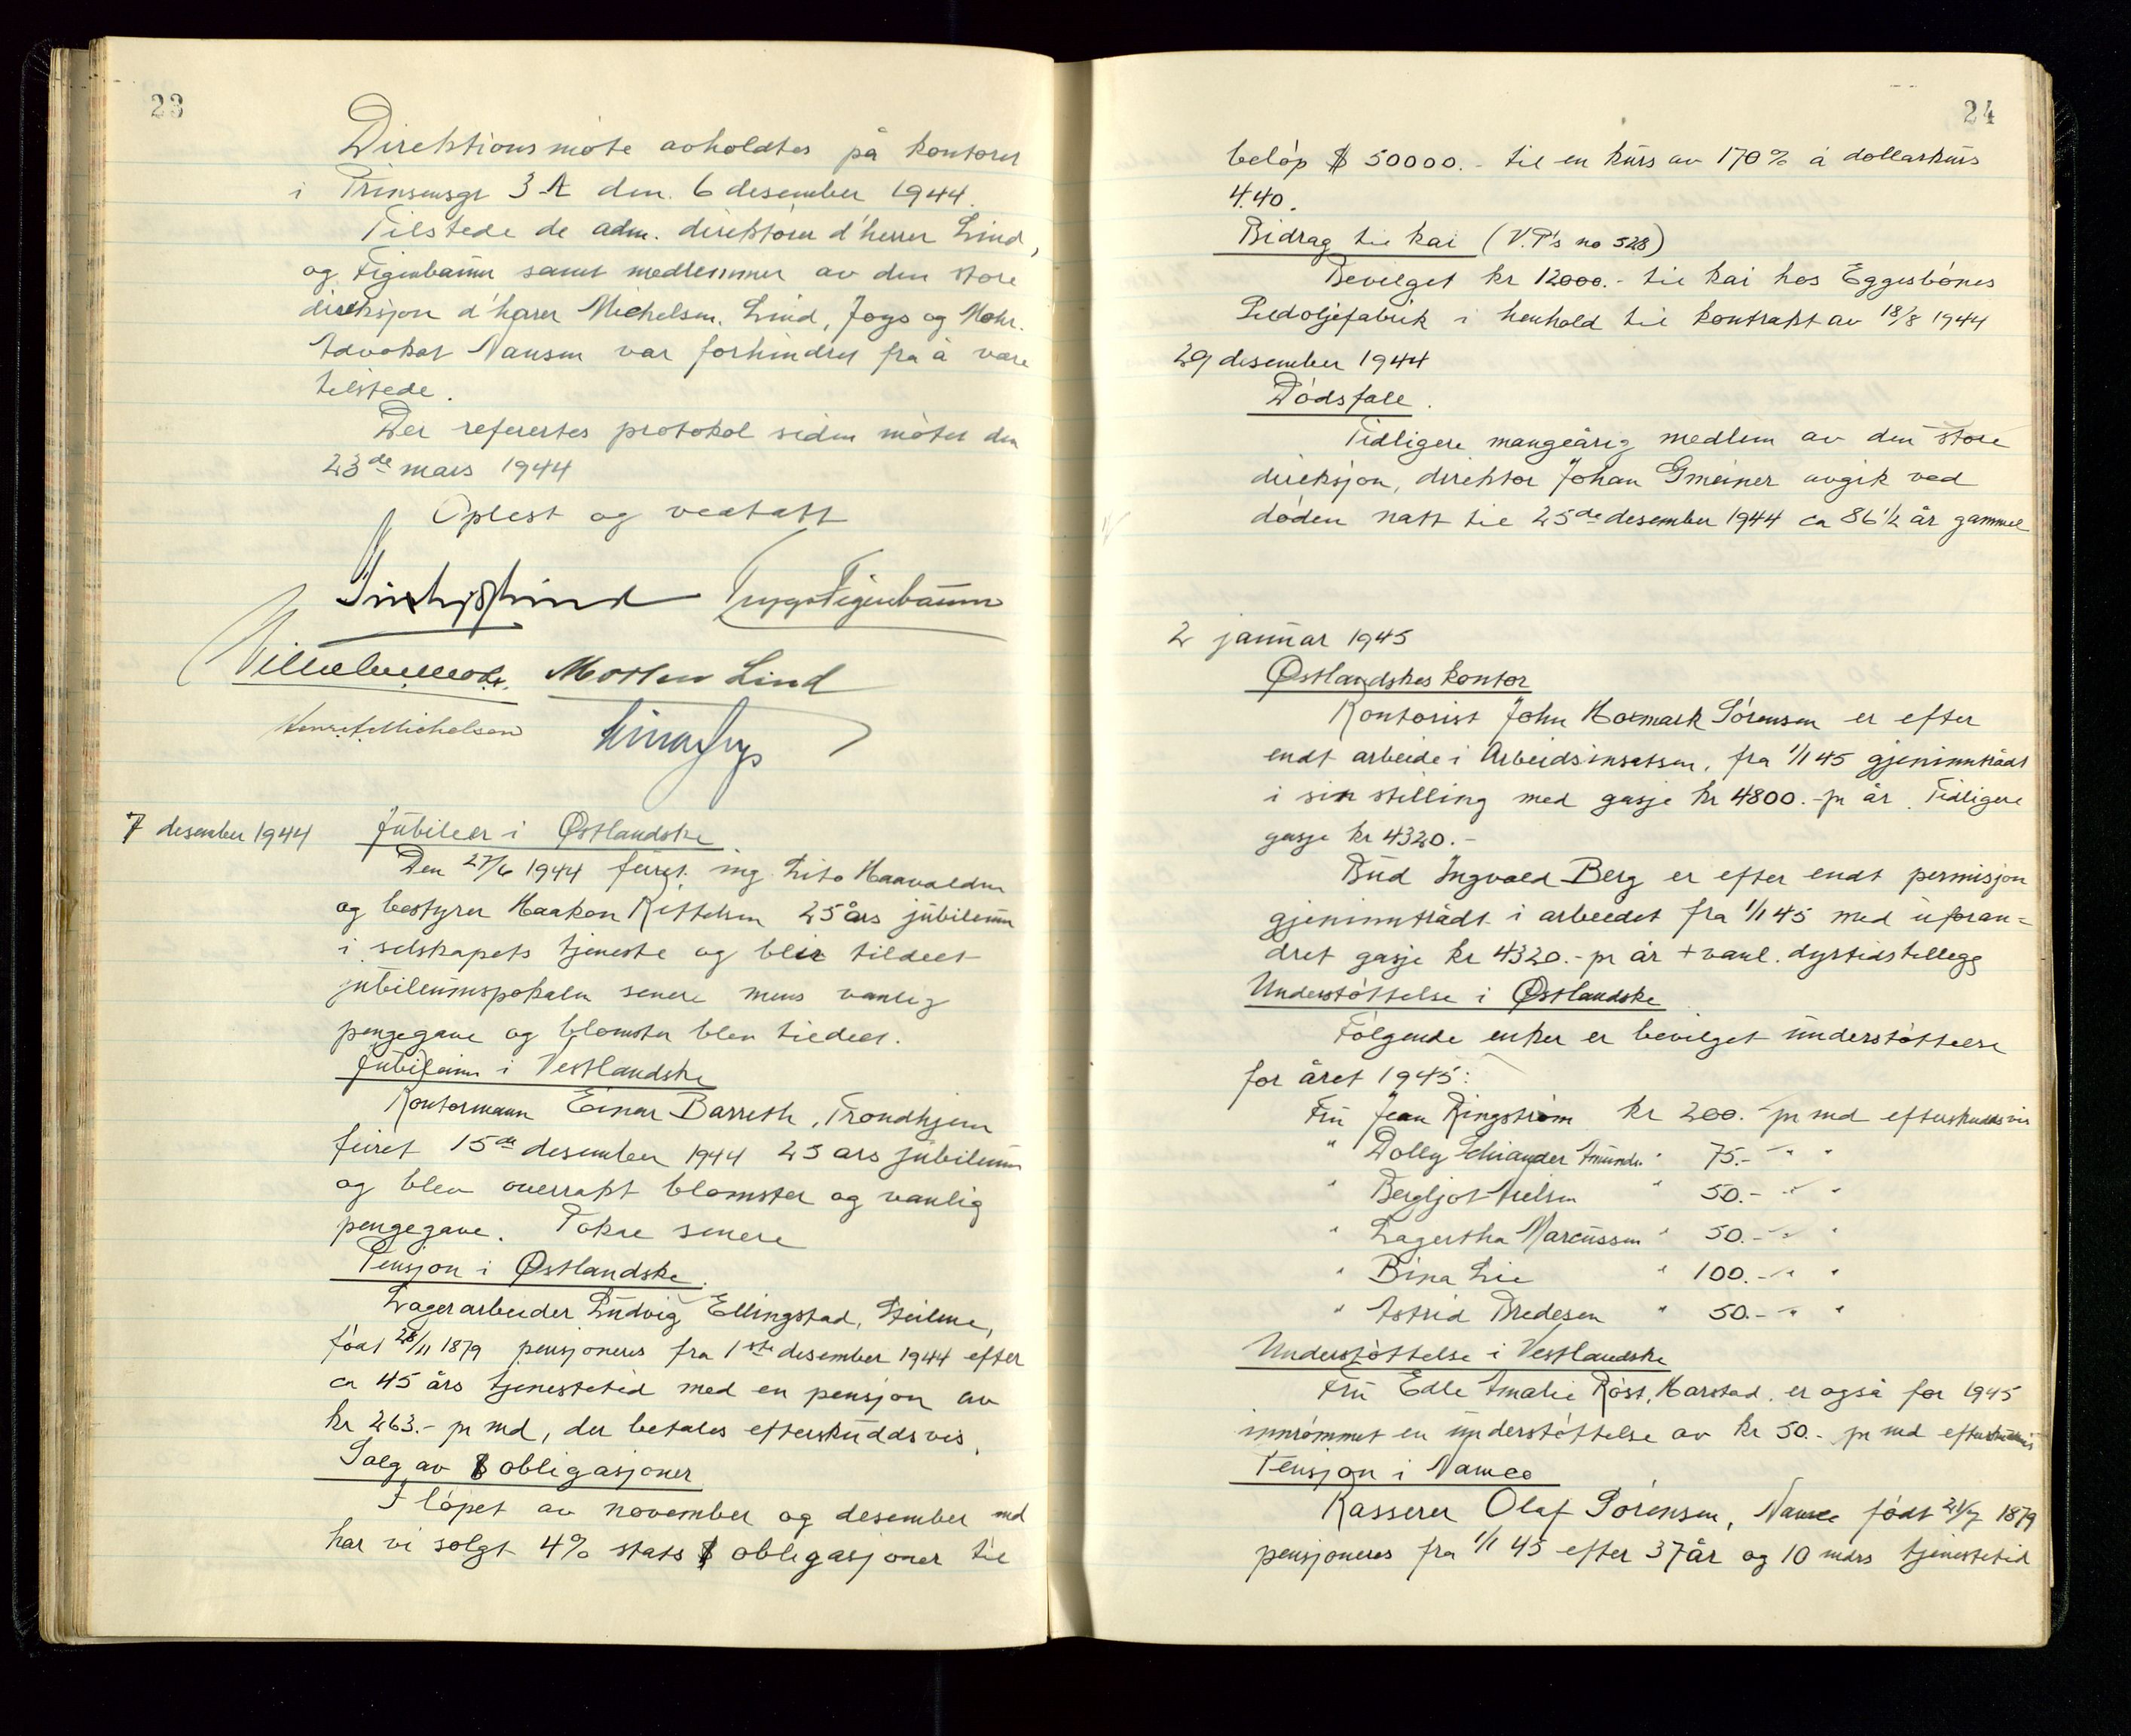 23
Direktionsmøte avholdtes på kontoret
i Prinsensgt 3 A den 6 desember 1944.
Tilstede de adm. direktører d'herrer Lind,
og Figenbaum samt medlemmer av den store
direksjon d'herrer Michelsen, Lind, Joys og Mohr.
Advokat Nansen var forhindret fra å være
tilstede.
Der referertes protokol siden møtet den
23de mars 1944
Oplest og vedtatt
Trygve Figenbaum
Morten Lind
Michelsen
7 desember 1944
Jubileer i Østlandske
Den 27/6 1944 feiret ing. Haavaldsen
og bestyrer Haakon Kittelsen 25 års jubileum
i selskapets tjeneste og blir tildelt
jubileumspokalen senere mens vanlig
pengegave og blomster blev tildelt.
Jubileum i Vestlandske
Kontormann Einar Barreth, Trondhjem
feiret 15de desember 1944 25 års jubileum
og blev overrakt blomster og vanlig
pengegave. Pokal senere
Pensjon i Østlandske.
Lagerarbeider Ludvig Ellingstad, Steilene,
født 28/11 1879 pensjoneres fra 1ste desember 1944 efter
ca 45 års tjenestetid med en pensjon av
kr 263.- pr md, der betales efterskuddsvis.
Salg av $ obligasjoner
I løpet av november og desember md
har vi solgt 4% stats $ obligasjoner til
24
beløp $ 50000.- til en kurs av 170% à dollarkurs
4.40.
Bidrag til kai (V.P's no 528)
Bevilget kr 12000.- til kai hos Eggesbønes
Sildoljefabrik i henhold til kontrakt av 18/8 1944
29 desember 1944
Dødsfall.
Tidligere mangeårig medlem av den store
direksjon, direktør Johan Gmeiner avgik ved
døden natt til 25de desember 1944 ca 86 1/2 år gammel
2 januar 1945
Østlandskes kontor
Kontorist John Hoxmark Sørensen er efter
endt arbeide i Arbeidsinsatsen, fra 1/1 45 gjeninntrådt
i sin stilling med gasje kr 4800.- pr år. Tidligere
gasje kr 4320.-
Bud Ingvald Berg er efter endt permisjon
gjeninntrådt i arbeidet fra 1/1 45 med uforan=
dret gasje kr 4320.- pr år + vanl. dyrtidstillegg
Understøttelse i Østlandske
Følgende enker er bevilget understøttelse
for året 1945:
Fru Jean Ringstrøm kr 200.- pr md efterskuddsvis
" Dolly Schiander Amunds. " 75.- " "
" Bergljot Nielsen " 50.- " "
" Lagertha Marcussen " 50.- " "
" Bina Lie " 100.- " "
" Astrid Bredesen " 50.- " "
Understøttelse i Vestlandske
Fru Edle Amalie Røst, Harstad, er også for 1945
innrømmet en understøttelse av kr 50.- pr md efterskuddsvis
Pensjon i Namco
Kasserer Olaf Sørensen, Namco født 21/7 1879
pensjoneres fra 1/1 45 efter 37 år og 10 mdrs tjenestetid